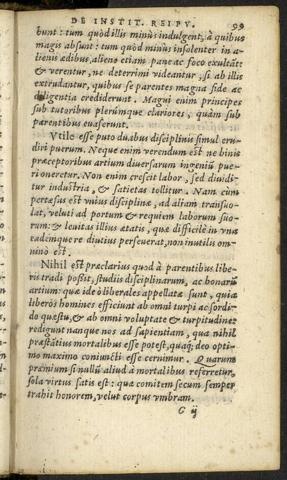 DE INSTIT. REIPV. 99
bunt: tum quòd illis minùs indulgent, à quibus
magis absunt: tum quòd minùs insolenter in a-
lienis ædibus, alieno etiam pane ac foco exultãt
& verentur, ne deterrimi videantur, si ab illis
extrudantur, quibus se parentes magna fide ac
diligentia crediderunt. Magni enim principes
sub tutoribus plerúmque clariores, quàm sub
parentibus euaserunt.
Vtile esse puto duabus disciplinis simul eru-
diri puerum. Neque enim verendum est ne binis
præceptoribus artium diuersarum ingeniũ pue-
ri oneretur. Non enim crescit labor, sed diuidi-
tur industria, & satietas tollitur. Nam cùm
pertæsus est vnius disciplinæ, ad aliam transuo-
lat, veluti ad portum & requiem laborum suo-
rum: & leuitas illius ætatis, quæ difficilè in vna
eademque re diutius perseuerat, non inutilis om-
nino est.
Nihil est præclarius quod à parentibus libe-
ris tradi possit, studiis disciplinarum, ac honarũ
artium: quæ ideò liberales appellatæ sunt, quia
liberos homines efficiunt ab omni turpi ac sordi-
do quæstu, & ab omni voluptate & turpitudine:
redigunt nanque nos ad sapientiam, qua nihil
præstãtius mortalibus esse potest, quaq; deo opti-
mo maximo coniuncti esse cernimur. Quarum
præmium si nullũ aliud à mortalibus referretur,
sola virtus satis est: quæ comitem secum semper
trahit honorem, velut corpus vmbram.
G ij